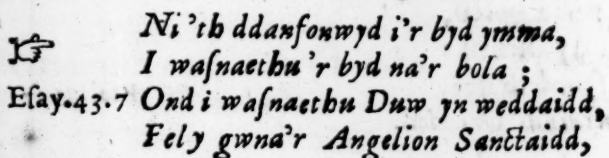 ☞ Ni'th ddanfonwyd i'r byd ymma,
I waſnaethu'r byd na'r bola;
Eſay.43.7 Ond i waſnaethu Duw yn weddaidd,
Fely gwna'r Angelion Sanctaidd,